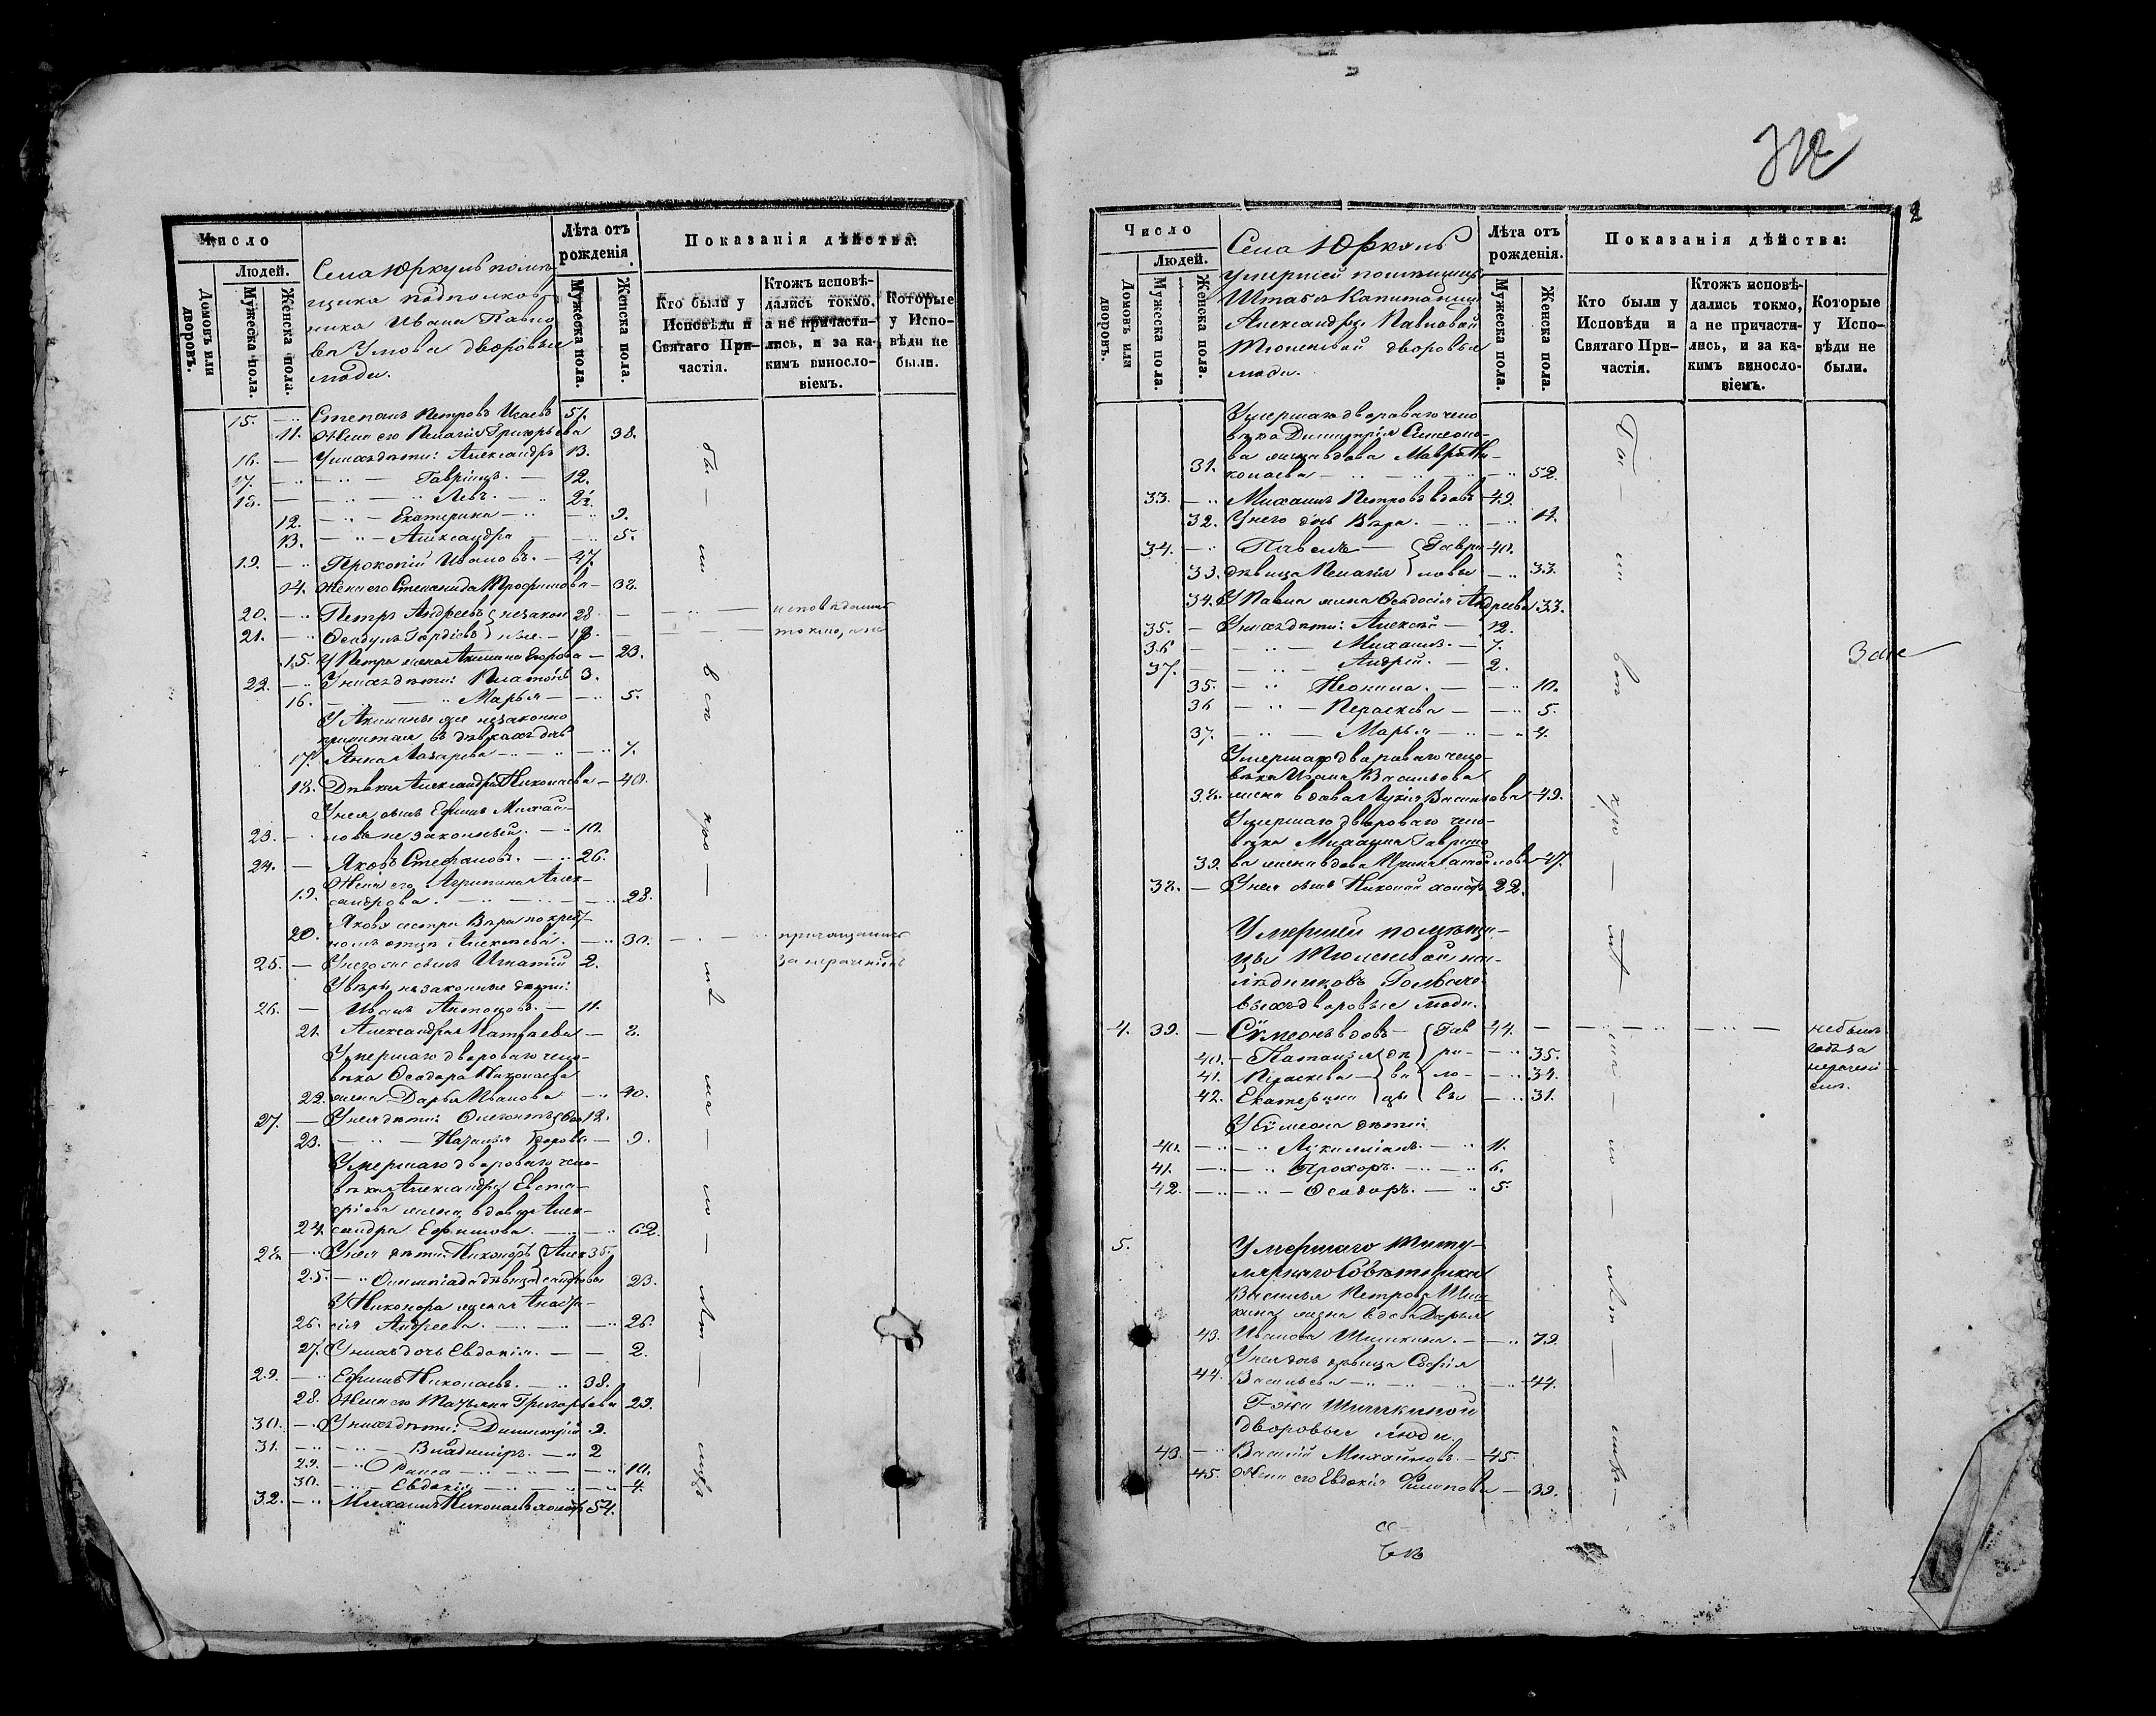 Число
Людей.
Домовъ или дворовъ.
Мужеска пола.
Женска пола.
Села Юркуль помѣ-
щика подполков-
ника Ивана Павло
ва Умова дворовые
люди.
Лѣта отъ рожденія.
Мужеска пола.
Женска пола.
Показанія дѣйства:
Кто были у Исповѣди и Святаго При-частія.
Ктожъ исповѣ-дались токмо, а не причасти-лись, и за ка-кимъ виносло-віемъ.
Которые у Испо-вѣди не были.
15. Степанъ Петровъ Исаевъ 51.
11. Жена его Пелагія Григорьева 38.
16. У нихъ дѣти: Александръ 13.
17. Гавріилъ. 12.
18. Левъ. 2½.
12. Екатерина 9.
13. Александра 5.
19. Прокопій Ивановъ. 47.
14. Жена его Степанида Трофимова 38.
20. Петръ Андреевъ незакон 28. исповѣдались
21. Ѳеодулъ Гордѣевъ ные. 18. токмо, а не
15. У Петра жена Акилина Егорова 23.
22. У нихъ дѣти: Платонъ 3.
16. Марья 5.
У Акилины же незаконно
прижитая въ дѣвкахъ дочь
17. Анна Лазарева 7.
18. Дѣвка Александра Николаева 40.
У нея сынъ Ефимъ Михай-
23. ловъ незаконный. 10.
24. Яковъ Стефановъ. 26.
Жена его Агрипина Алек-
19. сандрова. 28.
Якова сестра Вѣра по крест-
20. номъ отцѣ Алексѣева. 30. причащались
25. У него же сынъ Игнатій 2. за нераченіемъ
У Вѣры незаконные дѣти:
26. Иванъ Антоновъ. 11.
21. Александра Матвѣева 8.
Умершаго двороваго чело-
вѣка Ѳеодора Николаева
22. жена Дарья Иванова 40.
27. У нея дѣти: Ѳео 12.
23. Наталья доровы 9.
Умершаго двороваго чело-
вѣка Александра Евста-
фіева жена, вдова Алек-
24. сандра Ефимова. 62.
28. У нея дѣти: Никаноръ Алек 35.
25. Олимпіада дѣвица сандровы 23.
У Никонора жена Анаста-
26. сія Андреева. 26.
27. У нихъ дочь Евдокія. 2.
29. Ефимъ Николаевъ. 38.
28. Жена его Татьяна Григорьева 29.
30. У нихъ дѣти: Димитрій 9.
31. Владиміръ. 2
29. Раиса 10.
30. Евдокія 4.
32. Михаилъ Николаевъ холостъ 54.
бы — ли
всп
312
2
Число
Людей.
Домовъ или дворовъ.
Мужеска пола.
Женска пола.
Села Юркуль
умершей помѣщицы
Штабсъ Капитанши
Александры Павловой
Тюленевой дворовые
люди.
Лѣта отъ рожденія.
Мужеска пола.
Женска пола.
Показанія дѣйства:
Кто были у Исповѣди и Святаго При-частія.
Ктожъ исповѣ-дались токмо, а не причасти-лись, и за ка-кимъ виносло-віемъ.
Которые у Испо-вѣди не были.
Умершаго двороваго чело
вѣка Димитрія Симеоно-
ва жена вдова Мавра Ни-
31. колаева 52.
33. Михаилъ Петровъ вдовъ 49.
32. У него дочь Вѣра. 14.
34. Павелъ Гаври 40.
33. дѣвица Пелагія ловы 33.
34. У Павла жена Ѳеодосія Андреева 33.
35. У нихъ дѣти: Алексѣй 12.
36 Михаилъ. 7.
37. Андрей. 2.
35. Неонила. 10.
36 Параскева 5.
37. Марья 4.
Умершаго двороваго чело-
вѣка Ивана Васильева
38. жена вдова Лукія Васильева 49.
Умершаго двороваго чело-
вѣка Михаила Гаврило
39. ва жена вдова Ирина 47.
38. У нея сынъ Николай холостъ 22.
Умершей помѣщи-
цы Тюленевой на-
слѣдниковъ
выхъ дворовые люди.
4. 39. Сѵмеонъ вдовъ Гав 44. не былъ
40. Наталія дѣ ри- 35.
41. Параскева ви ло- 34. нерачені
42. Екатерина цы вы 31. емъ.
У Сѵмеона дѣти:
40. Лукилліанъ. 11.
41. Прохоръ. 6.
42. Ѳеодоръ. 5.
5. Умершаго Титу-
лярнаго Совѣтника
Василья Петрова Шиш
кина жена вдова Дарья
43. Иванова Шишкина. 79.
У нея дочь дѣвица Софія
44. Васильева 44.
Г-жи Шишкиной
дворовые люди.
43. Василій Михайловъ. 45.
45. Жена его Евдокія Филипова 39.